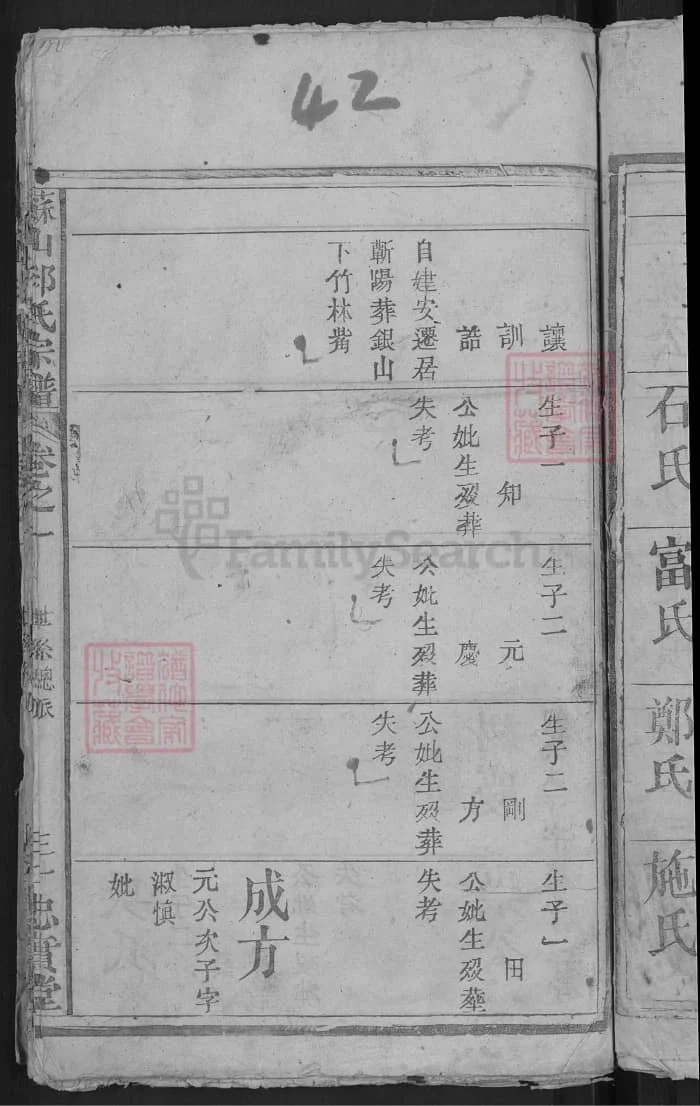 42
石氏
富氏
鄭氏
施氏
讓
訓
誥
自建安遷居
蘄陽葬銀山
下竹林嘴
生子一
知
公妣生歿葬
失考
生子二
元
慶
公妣生歿葬
失考
生子二
剛
方
公妣生歿葬
失考
生子一
田
公妣生歿葬
失考
成方
元公次子字
淑慎
妣
氏宗譜
卷之一
世系總派
忠貫堂
FamilySearch